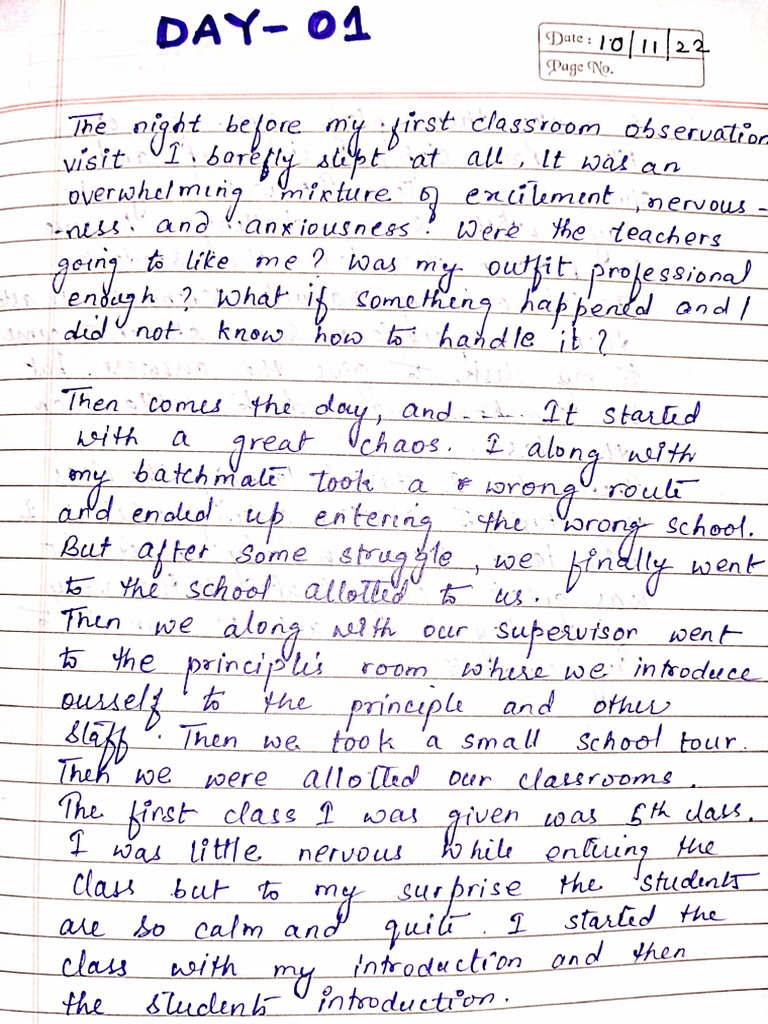 DAY-01
Date: 10/11/22
Page No.
The night before my first classroom observation
visit I barefly slept at all. It was an
overwhelming mixture of excitement, nervous-
-ness and anxiousness. Were the teachers
going to like me? Was my outfit professional
enough? What if something happened and I
did not know how to handle it?
Then comes the day, and ---- It started
with a great chaos. I along with
my batchmate took a wrong route
and ended up entering the wrong school.
But after some struggle, we finally went
to the school allotted to us.
Then we along with our supervisor went
to the principle's room where we introduce
ourself to the principle and other
staff. Then we took a small school tour.
Then we were allotted our classrooms.
The first class I was given was 5th class.
I was little nervous while entering the
class but to my surprise the students
are so calm and quite. I started the
class with my introduction and then
the students introduction.